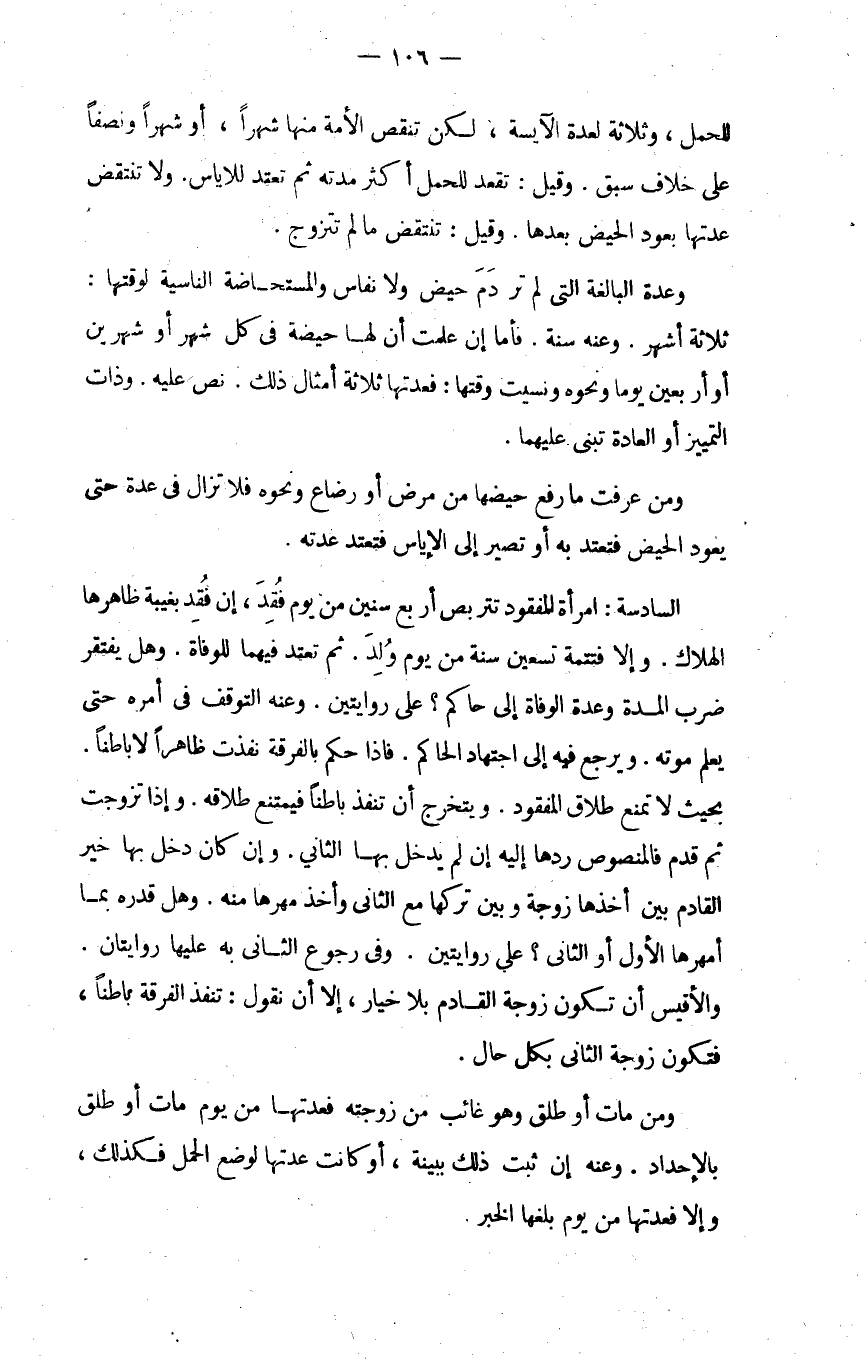 — ١٠٦ —
للحمل ، وثلاثة لعدة الآيسة ، لكن تنقص الأمة منها شهراً ، أو شهراً ونصفاً
على خلاف سبق . وقيل : تقعد للحمل أكثر مدته ثم تعتد للاياس. ولا تنتقض
عدتها بعود الحيض بعدها . وقيل : تنتقض مالم تتزوج .
وعدة البالغة التى لم تر دَمَ حيض ولا نفاس والمستحاضة الناسية لوقتها :
ثلاثة أشهر . وعنه سنة . فأما إن علمت أن لها حيضة فى كل شهر أو شهرين
أو أربعين يوما ونحوه ونسيت وقتها : فعدتها ثلاثة أمثال ذلك . نص عليه . وذات
التمييز أو العادة تبنى عليهما .
ومن عرفت مارفع حيضها من مرض أو رضاع ونحوه فلا تزال فى عدة حتى
يعود الحيض فتعتد به أو تصير إلى الإياس فتعتد عدته .
السادسة : امرأة المفقود تتربص أربع سنين من يوم فُقِدَ ، إن فُقِد بغيبة ظاهرها
الهلاك . وإلا فتتمة تسعين سنة من يوم وُلِدَ . ثم تعتد فيهما للوفاة . وهل يفتقر
ضرب المدة وعدة الوفاة إلى حاكم ؟ على روايتين . وعنه التوقف فى أمره حتى
يعلم موته . ويرجع فيه إلى اجتهاد الحاكم . فاذا حكم بالفرقة نفذت ظاهراً لاباطناً .
بحيث لا تمنع طلاق المفقود . ويتخرج أن تنفذ باطناً فيمتنع طلاقه . وإذا تزوجت
ثم قدم فالمنصوص ردها إليه إن لم يدخل بها الثاني . وإن كان دخل بها خير
القادم بين أخذها زوجة وبين تركها مع الثانى وأخذ مهرها منه . وهل قدره بما
أمهرها الأول أو الثانى ؟ علي روايتين . وفى رجوع الثانى به عليها روايتان .
والأقيس أن تكون زوجة القادم بلا خيار ، إلا أن نقول : تنفذ الفرقة باطناً ،
فتكون زوجة الثانى بكل حال .
ومن مات أو طلق وهو غائب من زوجته فعدتها من يوم مات أو طلق
بالإحداد . وعنه إن ثبت ذلك ببينة ، أو كانت عدتها لوضع الحمل فكذلك ،
وإلا فعدتها من يوم بلغها الخبر .